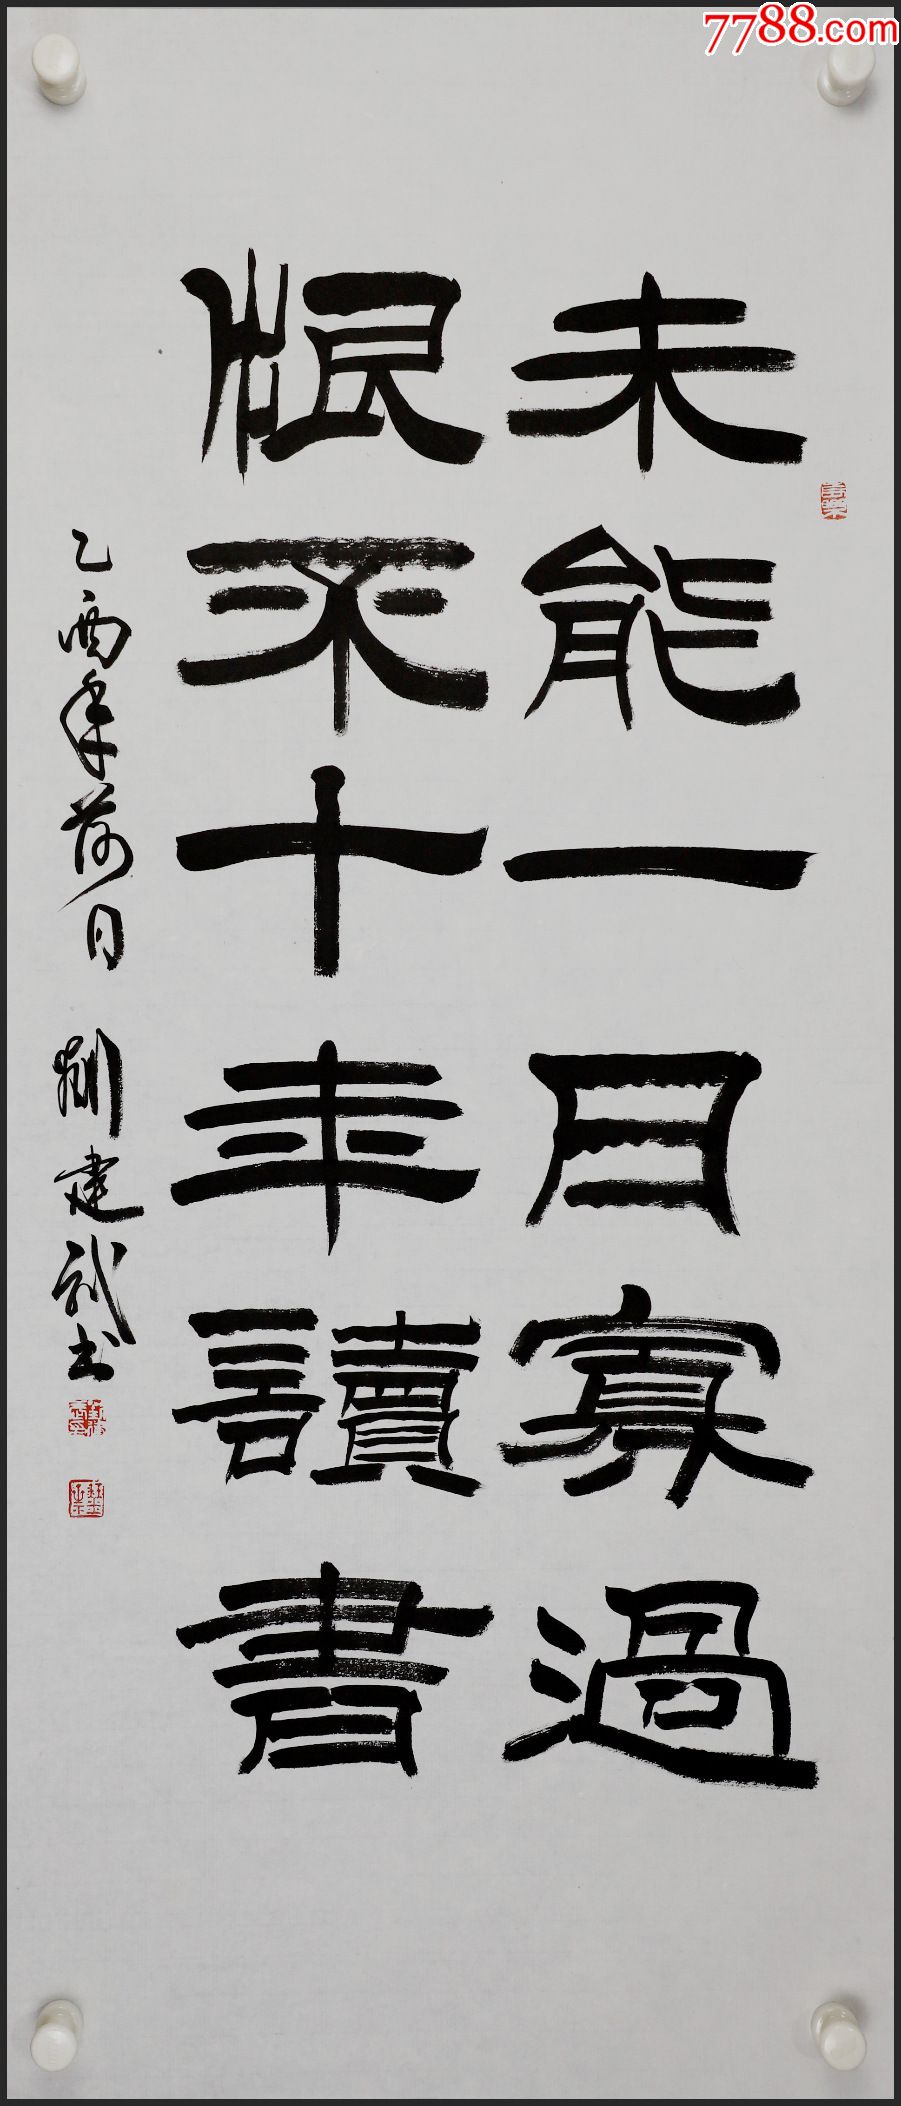 7788.com
未能一日寡過
恨不十年讀書
乙酉年荷月 劉建武书